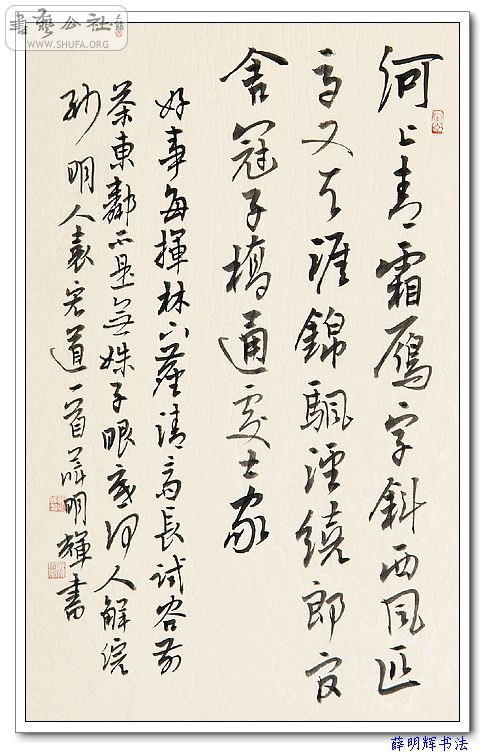 書藝公社
www.SHUFA.ORG
河上青霜鴈字斜西風匹
馬又天涯錦颿涇繞郎官
舍冠子橋通處士家
好事每揮林下麈清長試谷前
茶東鄰不是無姝子眼底何人解浣
紗 明人袁宏道一首 薛明輝書
薛明辉书法